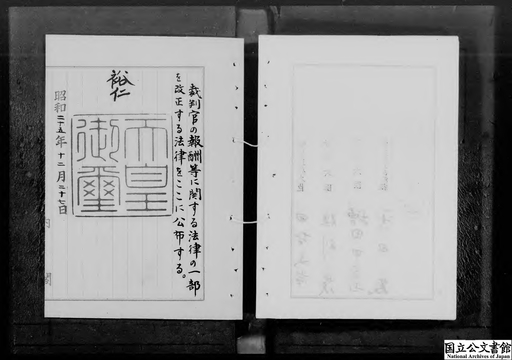 裁判官の報酬等に関する法律の一部
を改正する法律をここに公布する。
裕仁
天皇
御璽
昭和二十五年十二月二十七日
内閣
国立公文書館
National Archives of Japan